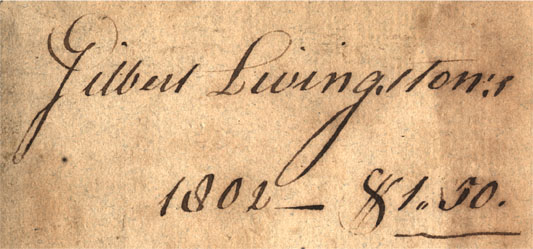 Gilbert Livingston's
1802 — $1..50.